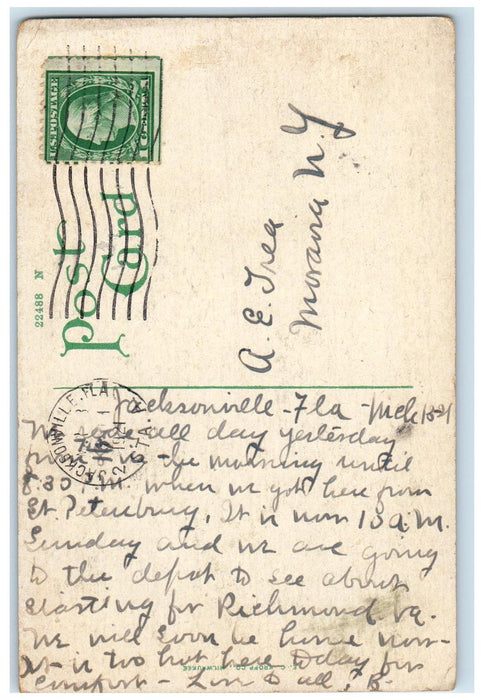 U.S. POSTAGE
Post
Card
22488 N
A. E. Trea
Moravia N Y
JACKSONVILLE, FLA.
1921
Jacksonville - Fla - Mch 13-21
We rode all day yesterday
from in the morning until
8.30 P.M. when we got here from
St. Petersburg, It is now 10 a.m.
Sunday and we are going
to the depot to see about
starting for Richmond Va.
We will soon be home now -
It is too hot here to day for
comfort - Love to all, B-
E. C. KROPP CO., MILWAUKEE